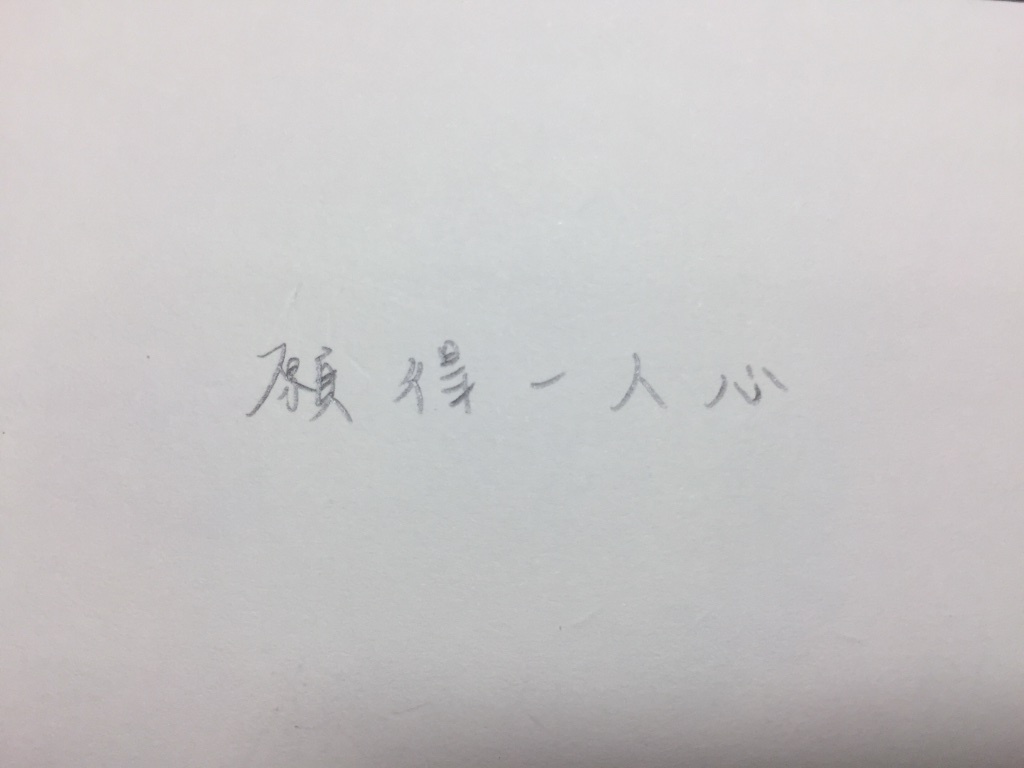 願得一人心